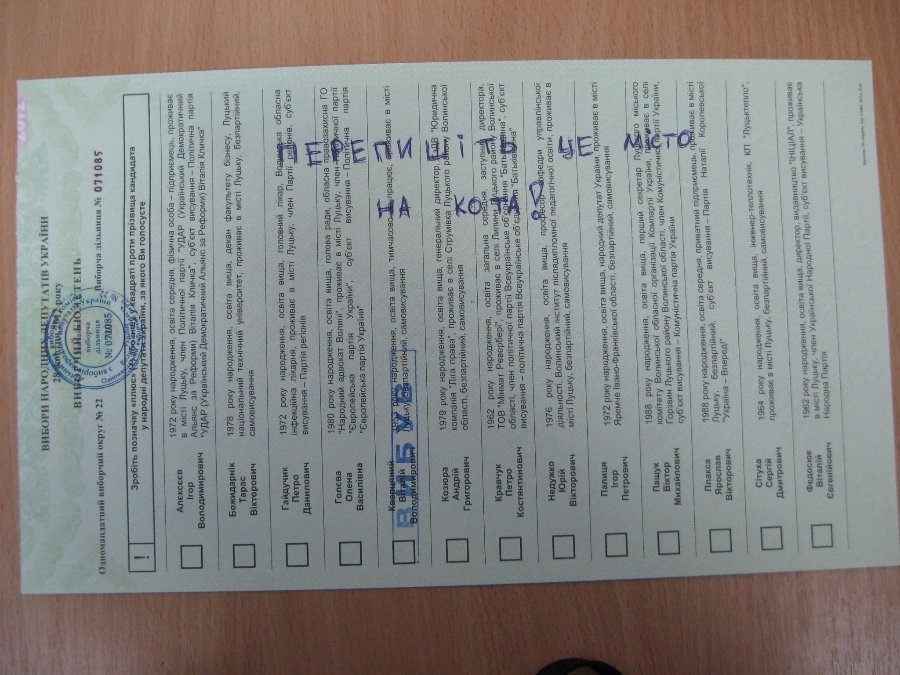 ВИБОРИ НАРОДНИХ ДЕПУТАТІВ УКРАЇНИ
ВИБОРЧИЙ БЮЛЕТЕНЬ
Одномандатний виборчий округ № 22 Виборча дільниця № 071085
! Зробіть позначку «плюс» (+) або іншу у квадраті проти прізвища кандидата
у народні депутати України, за якого Ви голосуєте
Алєксєєв
Ігор
Володимирович
1972 року народження, освіта середня, фізична особа – підприємець, проживає
в місті Луцьку, член Політичної партії "УДАР (Український Демократичний
Альянс за Реформи) Віталія Кличка", суб'єкт висування – Політична партія
"УДАР (Український Демократичний Альянс за Реформи) Віталія Кличка"
Божидарнік
Тарас
Вікторович
1978 року народження, освіта вища, декан факультету бізнесу, Луцький
національний технічний університет, проживає в місті Луцьку, безпартійний,
самовисування
Гайдучик
Петро
Данилович
1972 року народження, освіта вища, головний лікар, Волинська обласна
інфекційна лікарня, проживає в місті Луцьку, член Партії регіонів, суб'єкт
висування – Партія регіонів
Голєва
Олена
Василівна
1980 року народження, освіта вища, голова ради, обласна правозахисна ГО
"Народний адвокат Волині", проживає в місті Луцьку, член політичної партії
"Європейська партія України", суб'єкт висування – Політична партія
"Європейська партія України"
Віталій
Володимирович
народження, освіта вища, тимчасово не працює, проживає в місті
безпартійний, самовисування
ВИБУВ
Козюра
Андрій
Григорович
1979 року народження, освіта вища, генеральний директор, "Юридична
компанія "Ліга права", проживає в селі Струмівка Луцького району Волинської
області, безпартійний, самовисування
Кравчук
Петро
Костянтинович
1962 року народження, освіта загальна середня, заступник директора,
ТОВ "Мінкат Ревербері", проживає в селі Липини Луцького району Волинської
області, член політичної партії Всеукраїнське об'єднання "Батьківщина", суб'єкт
висування – політична партія Всеукраїнське об'єднання "Батьківщина"
Недухко
Юрій
Вікторович
1976 року народження, освіта вища, професор кафедри управлінської
діяльності, Волинський інститут післядипломної педагогічної освіти, проживає в
місті Луцьку, безпартійний, самовисування
Палиця
Ігор
Петрович
1972 року народження, освіта вища, народний депутат України, проживає в місті
Яремче Івано-Франківської області, безпартійний, самовисування
Пащук
Віктор
Михайлович
1988 року народження, освіта вища, перший секретар Луцького міського
комітету Волинської обласної організації Компартії України, проживає в селі
Горзвин Луцького району Волинської області, член Комуністичної партії України,
суб'єкт висування – Комуністична партія України
Плакса
Ярослав
Вікторович
1988 року народження, освіта середня, приватний підприємець, проживає в місті
Луцьку, безпартійний, суб'єкт висування – Партія Наталії Королевської
"Україна – Вперед!"
Сітуха
Сергій
Дмитрович
1964 року народження, освіта вища, інженер-теплотехнік, КП "Луцьктепло",
проживає в місті Луцьку, безпартійний, самовисування
Федосюк
Віталій
Євгенійович
1962 року народження, освіта вища, директор, видавництво "ІНІЦІАЛ", проживає
в місті Луцьку, член Української Народної Партії, суб'єкт висування – Українська
Народна Партія
ПЕРЕПИШІТЬ ЦЕ МІСТО
НА КОТА?